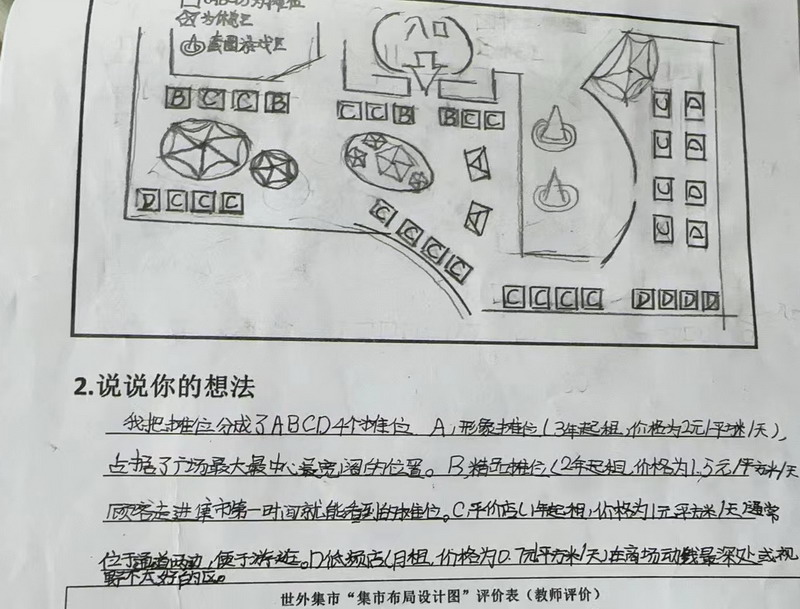 为休息区
为圈游戏区
入口
B C C B
C C B B C C
D C C C
C C C C
C C C C D D D D
2.说说你的想法
我把摊位分成了ABCD4个摊位 A,形象摊位(3年起租,价格为2元/平方米/天),
占据了广场最大最中心最宽阔的位置。B,精品摊位(2年起租,价格为1.5元/平方米/天
顾客走进集市第一时间就能看到的摊位。C平价店(1年起租,价格为1元平方米/天)通常
位于通道两边,便于游逛。D低频店(月租,价格为0.7元/平方米/天)在商场动线最深处或视
野不太好的区。
世外集市“集市布局设计图”评价表(教师评价)